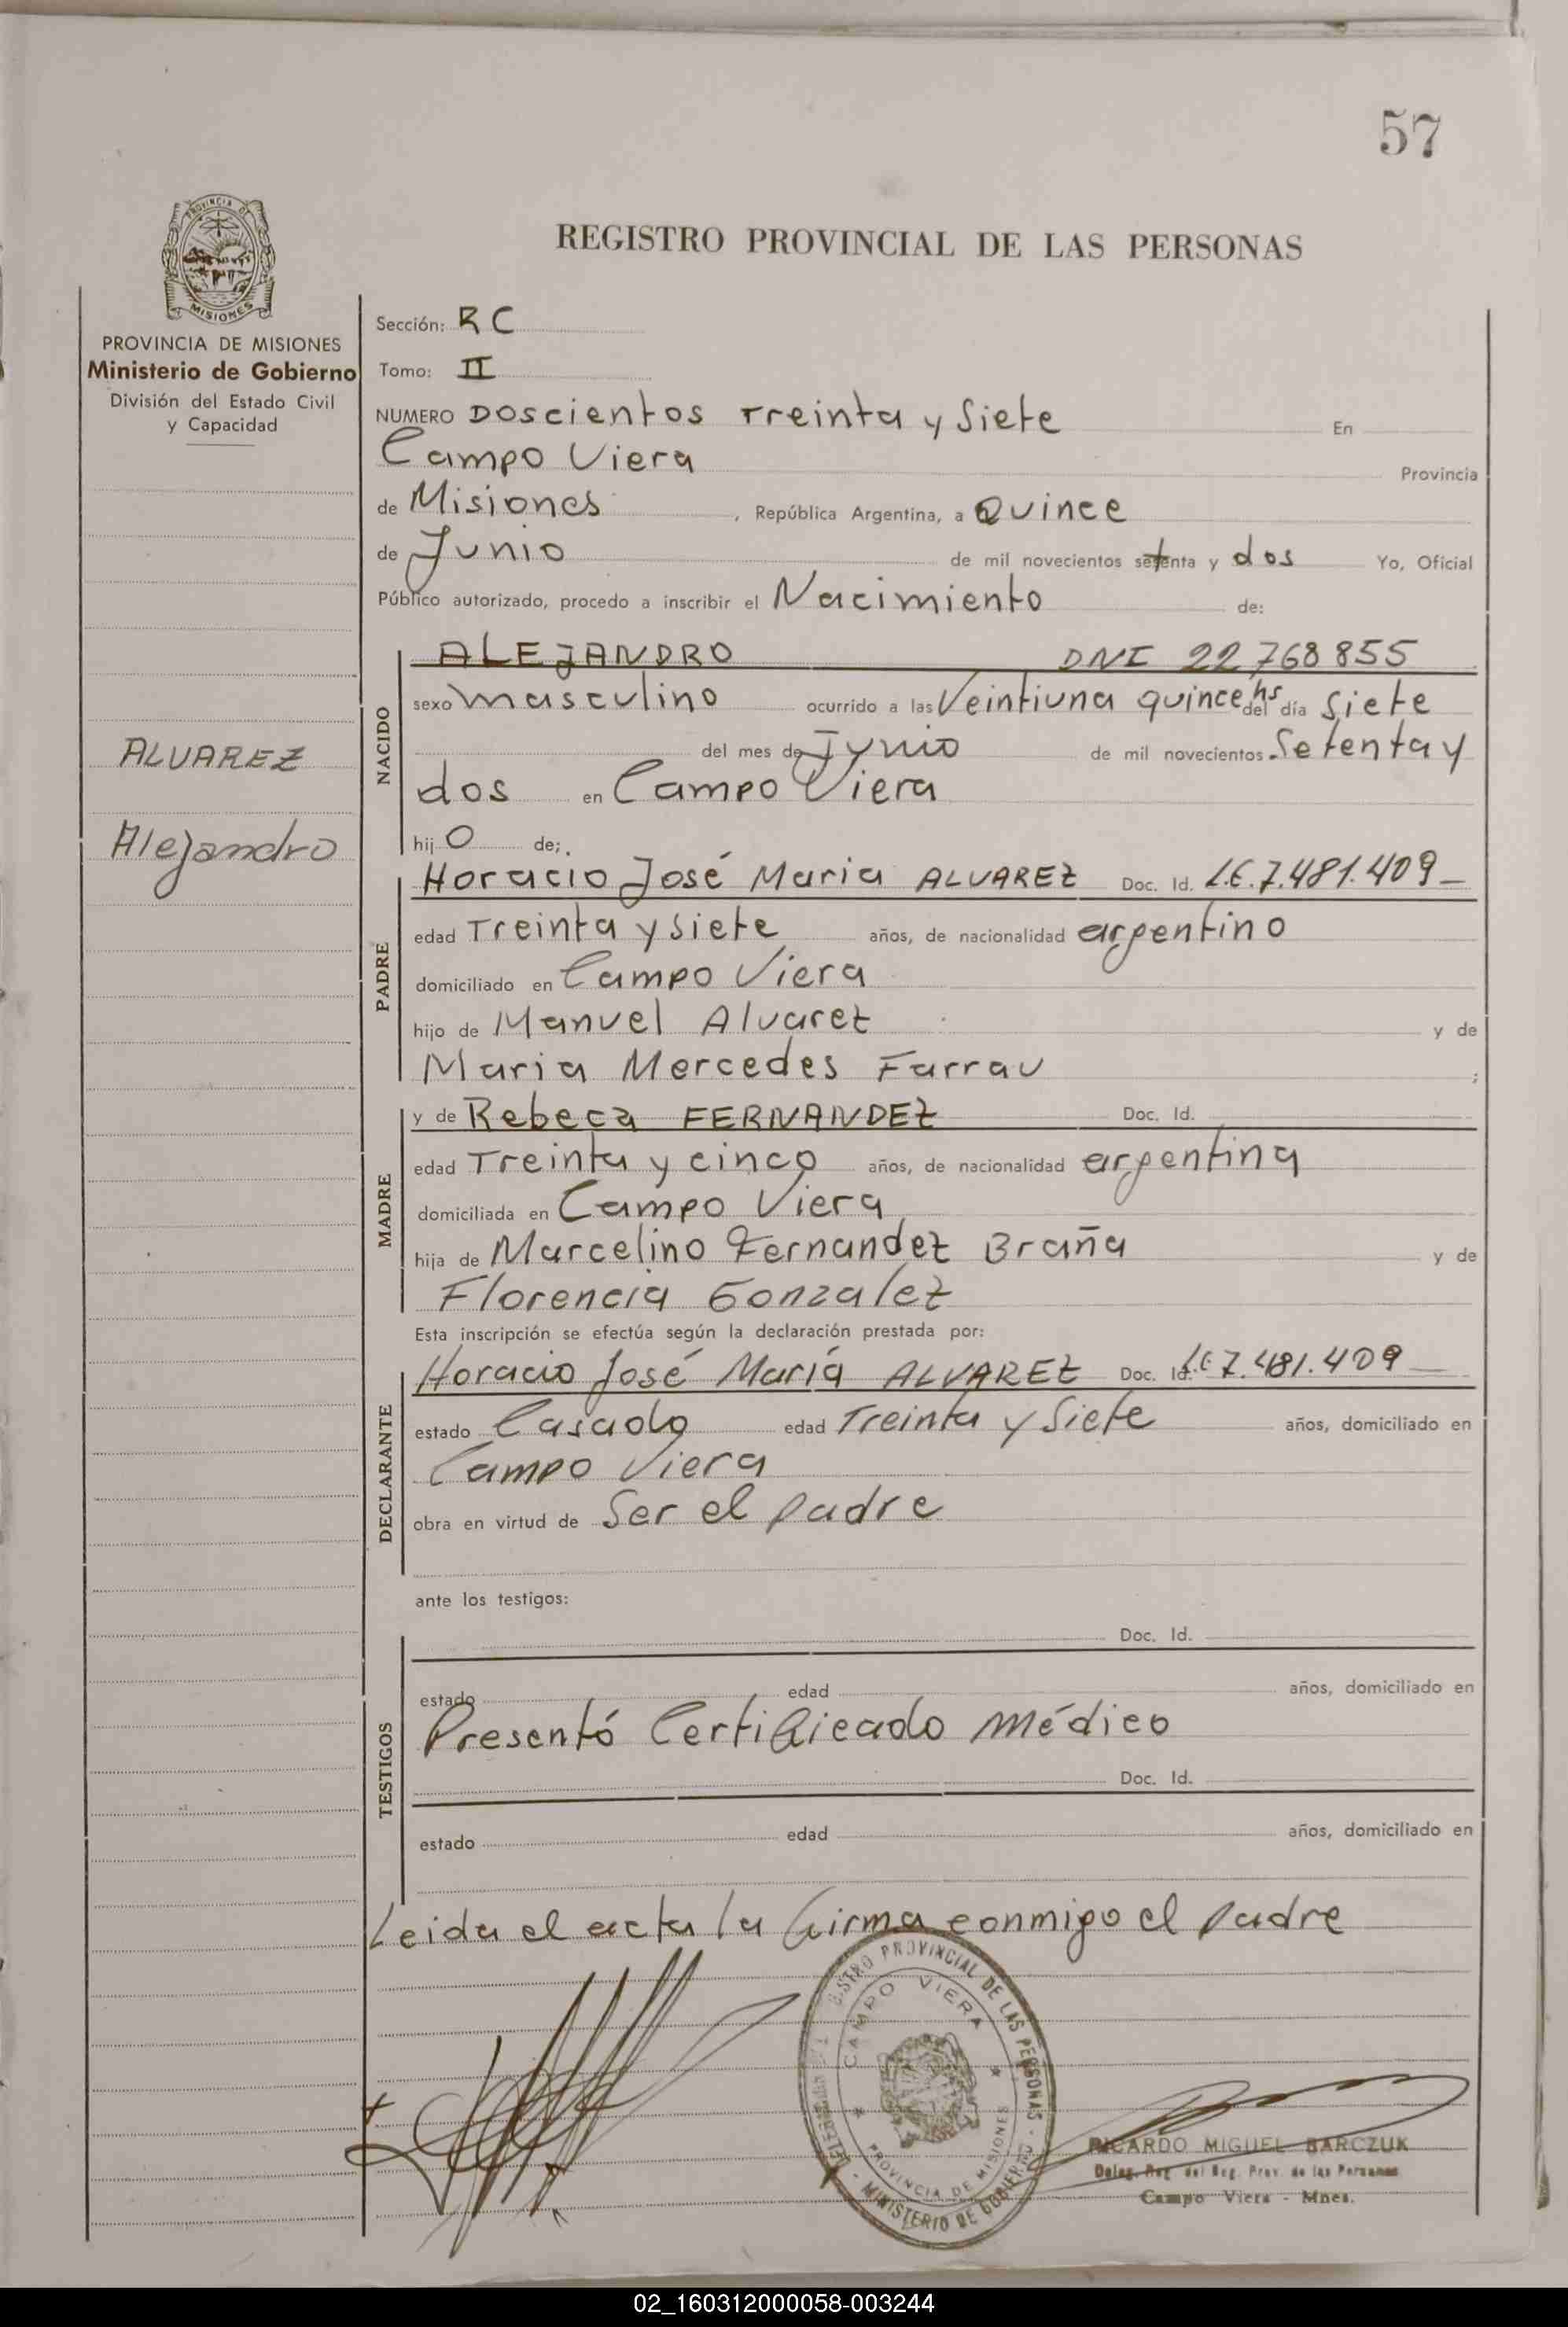 57
PROVINCIA DE
MISIONES
REGISTRO PROVINCIAL DE LAS PERSONAS
PROVINCIA DE MISIONES
Ministerio de Gobierno
División del Estado Civil
y Capacidad
ALVAREZ
Alejandro
Sección: RC
Tomo: II
NUMERO Doscientos Treinta y Siete En
Campo Viera Provincia
de Misiones, República Argentina, a Quince
de Junio de mil novecientos setenta y dos Yo, Oficial
Público autorizado, procedo a inscribir el Nacimiento de:
NACIDO
ALEJANDRO DNI 22 768 855
sexo masculino ocurrido a las Veintiuna quince hs del día Siete
del mes de Junio de mil novecientos Setenta y
dos en Campo Viera
hijo de;
PADRE
Horacio José Maria ALVAREZ Doc. Id. L.E. 7.481.409
edad Treinta y Siete años, de nacionalidad argentino
domiciliado en Campo Viera
hijo de Manuel Alvarez y de
Maria Mercedes Farrau ;
MADRE
y de Rebeca FERNANDEZ Doc. Id.
edad Treinta y cinco años, de nacionalidad argentina
domiciliada en Campo Viera
hija de Marcelino Fernandez Braña y de
Florencia Gonzalez
Esta inscripción se efectúa según la declaración prestada por:
DECLARANTE
Horacio José María ALVAREZ Doc. Id. L.E 7.481.409
estado Casado edad Treinta y Siete años, domiciliado en
Campo Viera
obra en virtud de Ser el padre
ante los testigos:
TESTIGOS
Doc. Id.
estado edad años, domiciliado en
Presentó Certificado Médico
Doc. Id.
estado edad años, domiciliado en
Leida el acta la firma conmigo el padre
GISTRO PROVINCIAL DE LAS PERSONAS - MINISTERIO DE GOBIERNO -
CAMPO VIERA
PROVINCIA DE MISIONES
RICARDO MIGUEL BARCZUK
Deleg. Reg. del Reg. Prov. de las Personas
Campo Viera - Mnes.
02_160312000058-003244